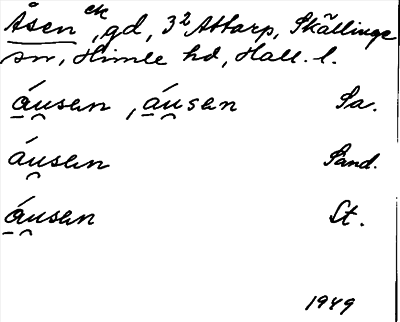 Åsen ek, gd, 3² Attarp, Skällinge
sn, Himle hd, Hall. l.
áusen , áusen Sa.
áusen Sand.
áusen St.
1949